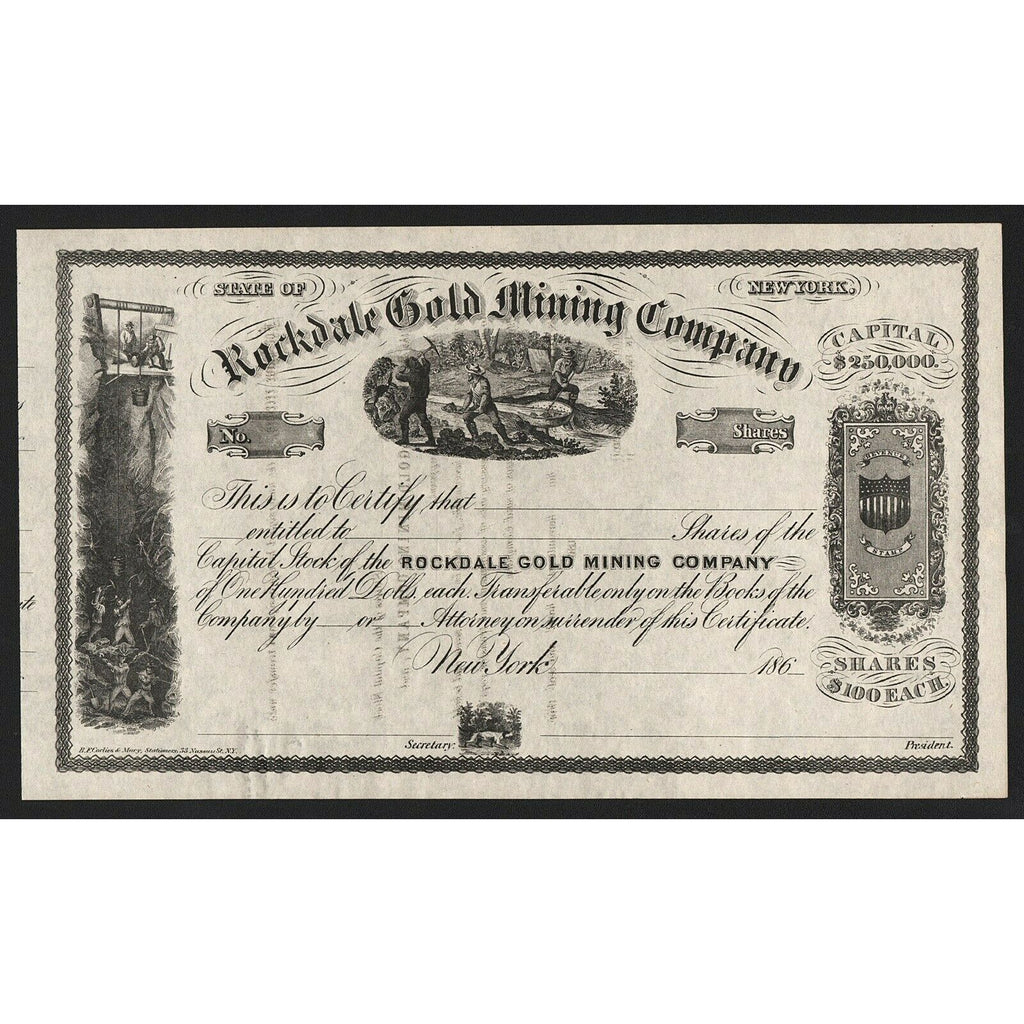 STATE OF
NEW YORK.
Rockdale Gold Mining Company
CAPITAL
$250,000.
No.
Shares
REVENUE
STAMP
This is to Certify that
entitled to Shares of the
Capital Stock of the ROCKDALE GOLD MINING COMPANY
of One Hundred Dolls. each. Transferable only on the Books of the
Company by or Attorney on surrender of this Certificate.
New York 186
SHARES
$100 EACH.
Secretary.
President.
B. F. Corlies & Macy, Stationers, 33 Nassau St. N.Y.